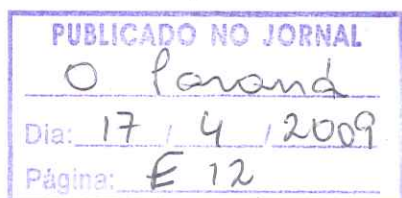 PUBLICADO NO JORNAL
O Paraná
Dia: 17 / 4 / 2009
Página: E 12